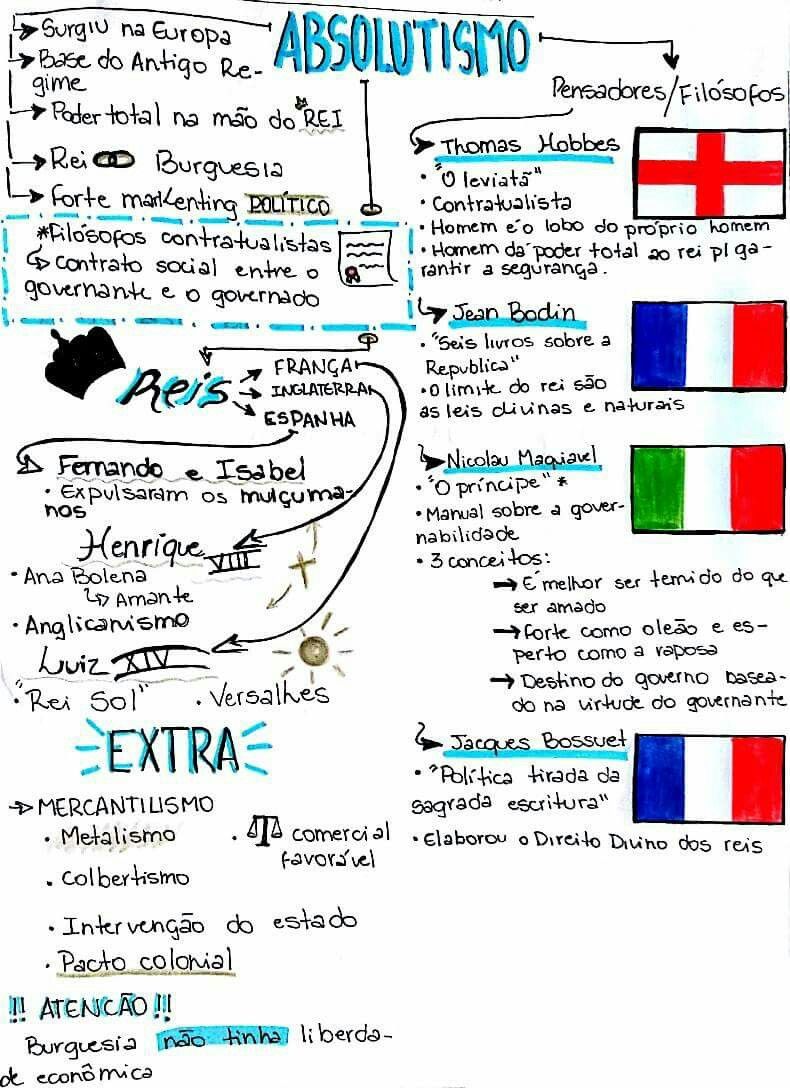 ABSOLUTISMO
Surgiu na Europa
Base do Antigo Re-
gime
Poder total na mão do REI
Rei Burguesia
Forte markenting POLÍTICO
*Filósofos contratualistas
contrato social entre o
governante e o governado
Reis
FRANÇA
INGLATERRA
ESPANHA
Fernando e Isabel
• Expulsaram os mulçuma-
nos
Henrique VIII
• Ana Bolena
Amante
• Anglicanismo
Luiz XIV
"Rei Sol" . Versalhes
EXTRA
MERCANTILISMO
• Metalismo
• comercial
favorável
• Colbertismo
• Intervenção do estado
• Pacto colonial
!!! ATENCÃO !!!
Burguesia não tinha liberda-
de econômica
Pensadores/Filósofos
Thomas Hobbes
• "O leviatã"
• Contratualista
• Homem é o lobo do próprio homem
• Homem dá poder total ao rei p/ ga-
rantir a segurança.
Jean Bodin
• "Seis livros sobre a
Republica"
• O limite do rei são
as leis divinas e naturais
Nicolau Maquiavel
• "O príncipe" *
• Manual sobre a gover-
nabilidade
• 3 conceitos:
É melhor ser temido do que
ser amado
forte como o leão e es-
perto como a raposa
Destino do governo basea-
do na virtude do governante
Jacques Bossuet
• "Política tirada da
sagrada escritura"
• Elaborou o Direito Divino dos reis